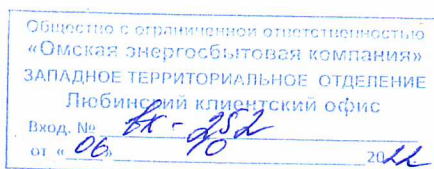 Общество с ограниченной ответственностью
«Омская энергосбытовая компания»
ЗАПАДНОЕ ТЕРРИТОРИАЛЬНОЕ ОТДЕЛЕНИЕ
Любинский клиентский офис
Вход. № вх - 252
от « 06 » 10 2022